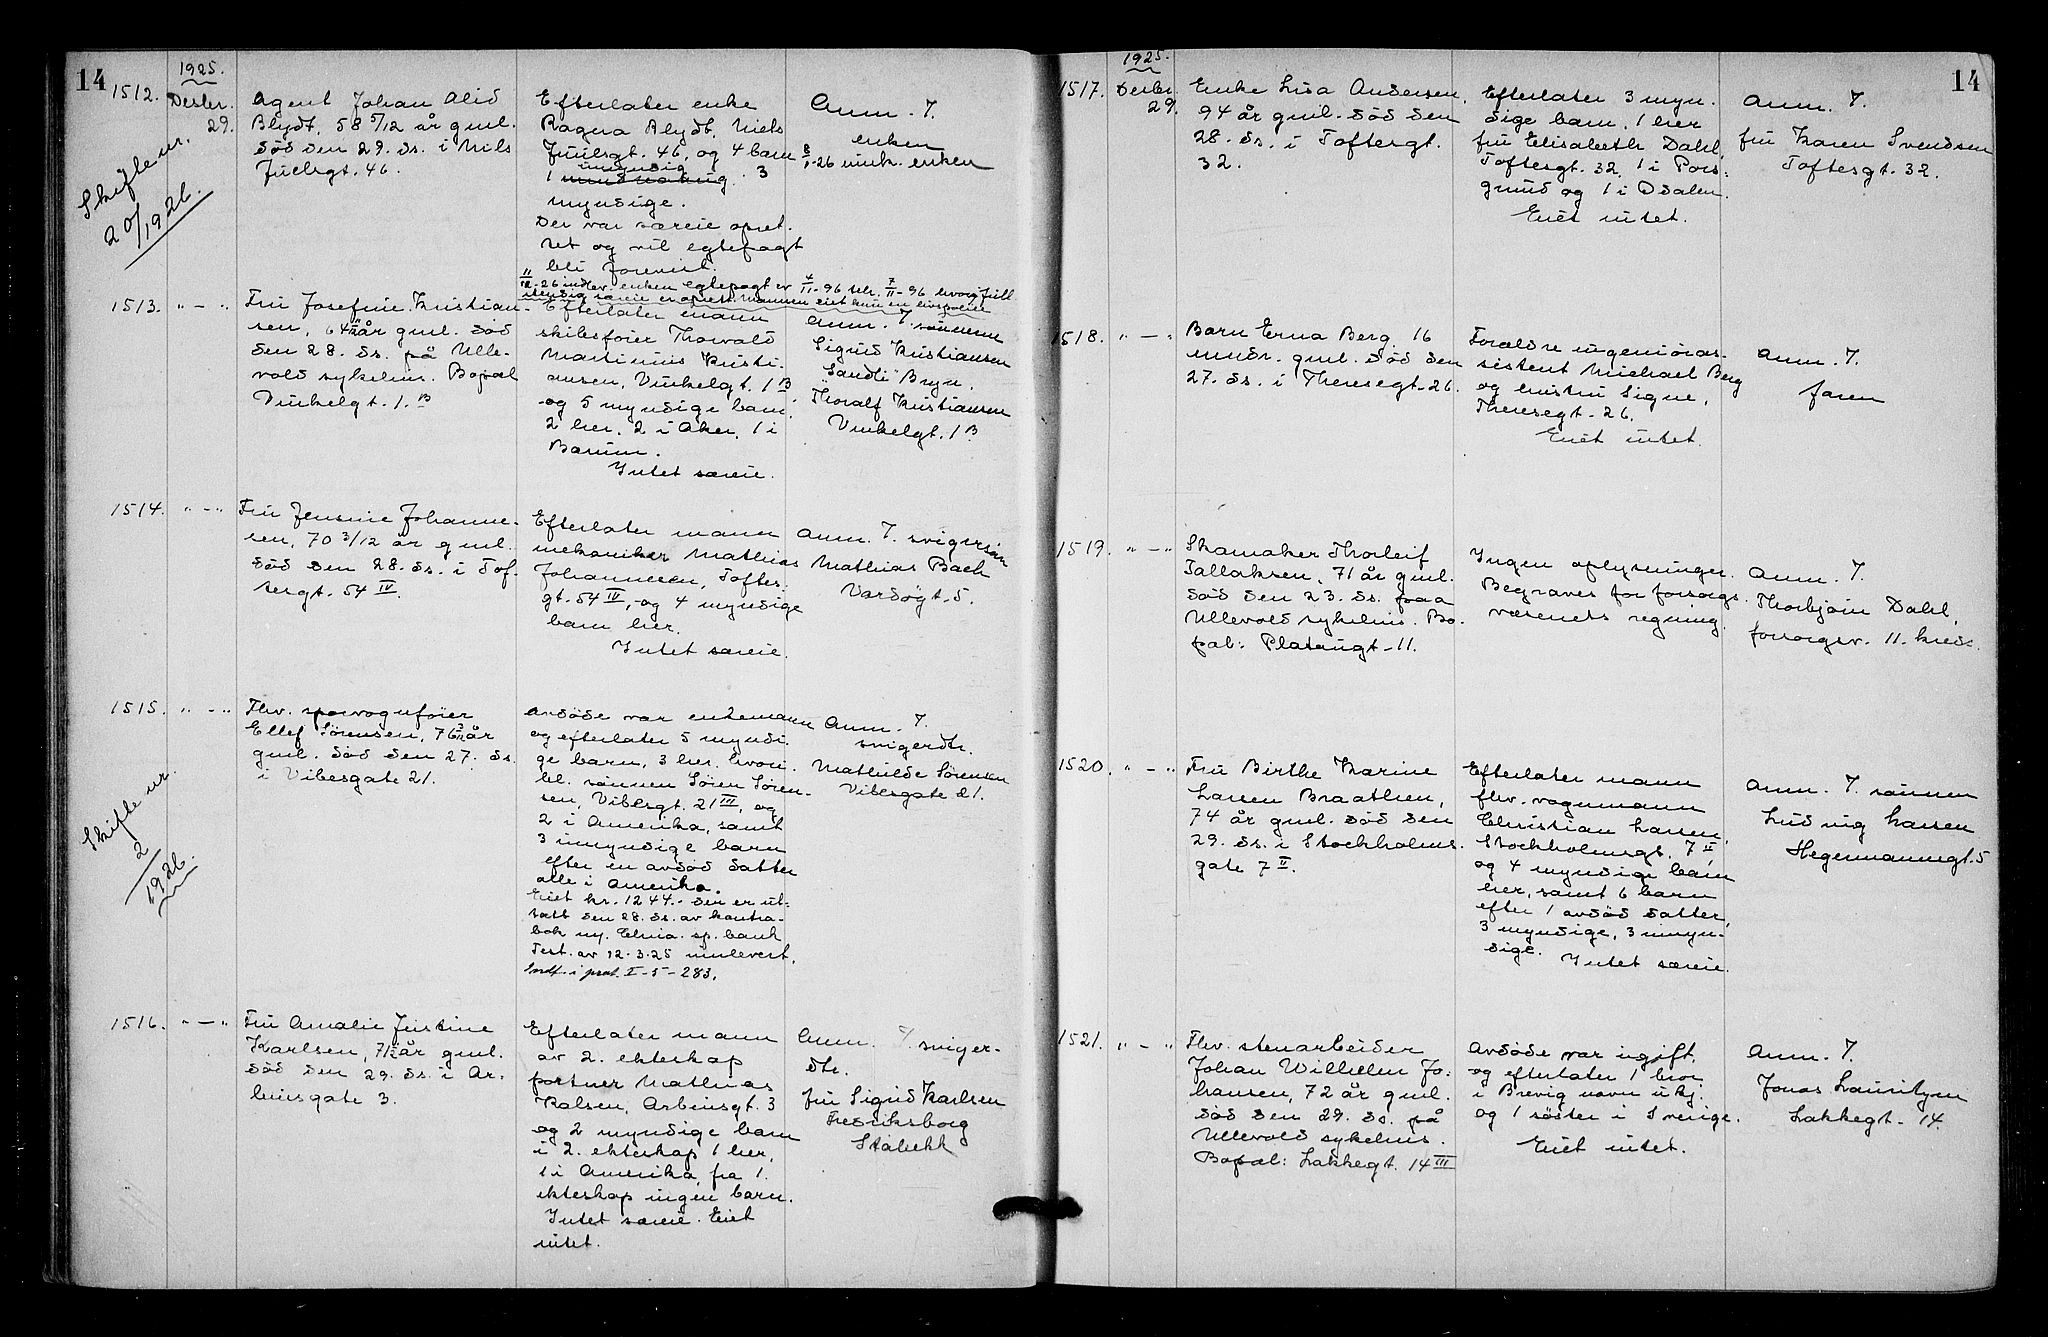 14
1925.
1512.
Desbr.
29.
Skifte nr.
20/1926.
Agent Johan Alid
Blydt, 58 5/12 år gml.
død den 29. ds. i Nils
Juelsgt. 46.
Efterlater enke
Ragna Blydt, Niels
Juulsgt. 46, og 4 barn
umyndig
1 mindreårig. 3
myndige.
Der var særeie opret-
tet og vil egtepagt
bli forevist.
Anm. T.
enken
8/1-26 unk. enken
-26 indlev. enken egtepagt av 4/11-96 tgl. 7/11-96 hvorefter full
stendig særeie er opret. Mannen eiet kun en livspolise
1513.
" — "
Fru Josefine Kristian-
sen, 64 år gml. død
den 28. ds. på Ulle-
vold sykehus. Bopæl
Vinkelgt. 1. B
Efterlater mann
skibsfører Thorvald
Martinius Kristi-
ansen, Vinkelgt. 1 B,
og 5 myndige barn,
2 her, 2 i Aker, 1 i
Bærum.
Intet særeie.
Anm. T. sønnene
Sigurd Kristiansen
"Sandli" Bryn.
Thoralf Kristiansen
Vinkelgt. 1 B
1514.
" — "
Fru Jensine Johanne-
sen, 70 3/12 år gml.
død den 28. ds. i Tof-
tesgt. 54 IV.
Efterlater mann
mekaniker Mathias
Johannesen, Toftes-
gt. 54 IV, og 4 myndige
barn her.
Intet særeie.
Anm. T. svigersøn
Mathias Bach
Vardøgt. 5.
1515.
" — "
Skifte nr.
2
1926.
Fhv. sporvognfører
Ellef Sørensen, 76 år
gml. død den 27. ds.
i Vibesgate 21.
Avdøde var enkemann
og efterlater 5 myndi-
ge barn, 3 her, hvori-
bl. sønnen Søren Søren-
sen, Vibesgt. 21 III, og
2 i Amerika, samt
3 umyndige barn
efter en avdød datter
alle i Amerika.
Eiet kr. 1244.- den er ut-
satt den 28. ds. av kontra-
bok ny. Chria. sp. bank
Test. av 12.3.25 innlevert.
Indf. i prot. I-5-283.
Anm. T.
svigerdtr.
Mathilde Sørensen
Vibesgate 21.
1516.
" — "
Fru Amalie Justine
Karlsen, 71 år gml.
død den 29. ds. i Ar-
binsgate 3.
Efterlater mann
av 2. ekteskap
portner Mathias
Kalsen, Arbinsgt. 3
og 2 myndige barn
i 2. ekteskap 1 her,
1 i Amerika, fra 1.
ekteskap ingen barn.
Intet særeie. Eiet
intet.
Anm. T. sviger-
dtr.
fru Sigrid Karlsen
Fredriksborg
Stabekk
14
1925.
1517.
Desbr.
29.
Enke Lisa Andersen,
94 år gml. død den
28. ds. i Toftesgt.
32.
Efterlater 3 myn-
dige barn, 1 her
fru Elisabeth Dahl,
Toftesgt. 32, 1 i Pors-
grund og 1 i Odalen.
Eiet intet.
Anm. T.
fru Karen Svendsen
Toftesgt. 32.
1518.
" — "
Barn Erna Berg, 16
mndr. gml. død den
27. ds. i Theresegt. 26.
Forældre ingeniøras-
sistent Michael Berg
og hustru Signe,
Theresegt. 26.
Eiet intet.
Anm. T.
faren
1519.
" — "
Skomaker Thorleif
Tallaksen, 71 år gml.
død den 23. ds. paa
Ullevold sykehus. Bo-
pæl: Platougt. 11.
Ingen oplysninger.
Begraves for forsorgs-
væsenets regning.
Anm. T.
Thorbjørn Dahl,
forsorgsv. 11. kreds.
1520.
" — "
Fru Birthe Karine
Larsen Braathen,
74 år gml. død den
29. ds. i Stockholms-
gate 7 II.
Efterlater mann
fhv. vognmann
Christian Larsen,
Stockholmsgt. 7 II,
og 4 myndige barn
her, samt 6 barn
efter 1 avdød datter,
3 myndige, 3 umyn-
dige.
Intet særeie.
Anm. T. sønnen
Ludvig Larsen
Hegermannsgt. 5
1521.
" — "
Fhv. stenarbeider
Johan Wilhelm Jo-
hansen, 72 år gml.
død den 29. ds. på
Ullevold sykehus.
Bopæl: Lakkegt. 14 III
Avdøde var ugift,
og efterlater 1 bror
i Brevig navn ukj.
og 1 søster i Sverige.
Eiet intet.
Anm. T.
Jonas Lauritzen
Lakkegt. 14.